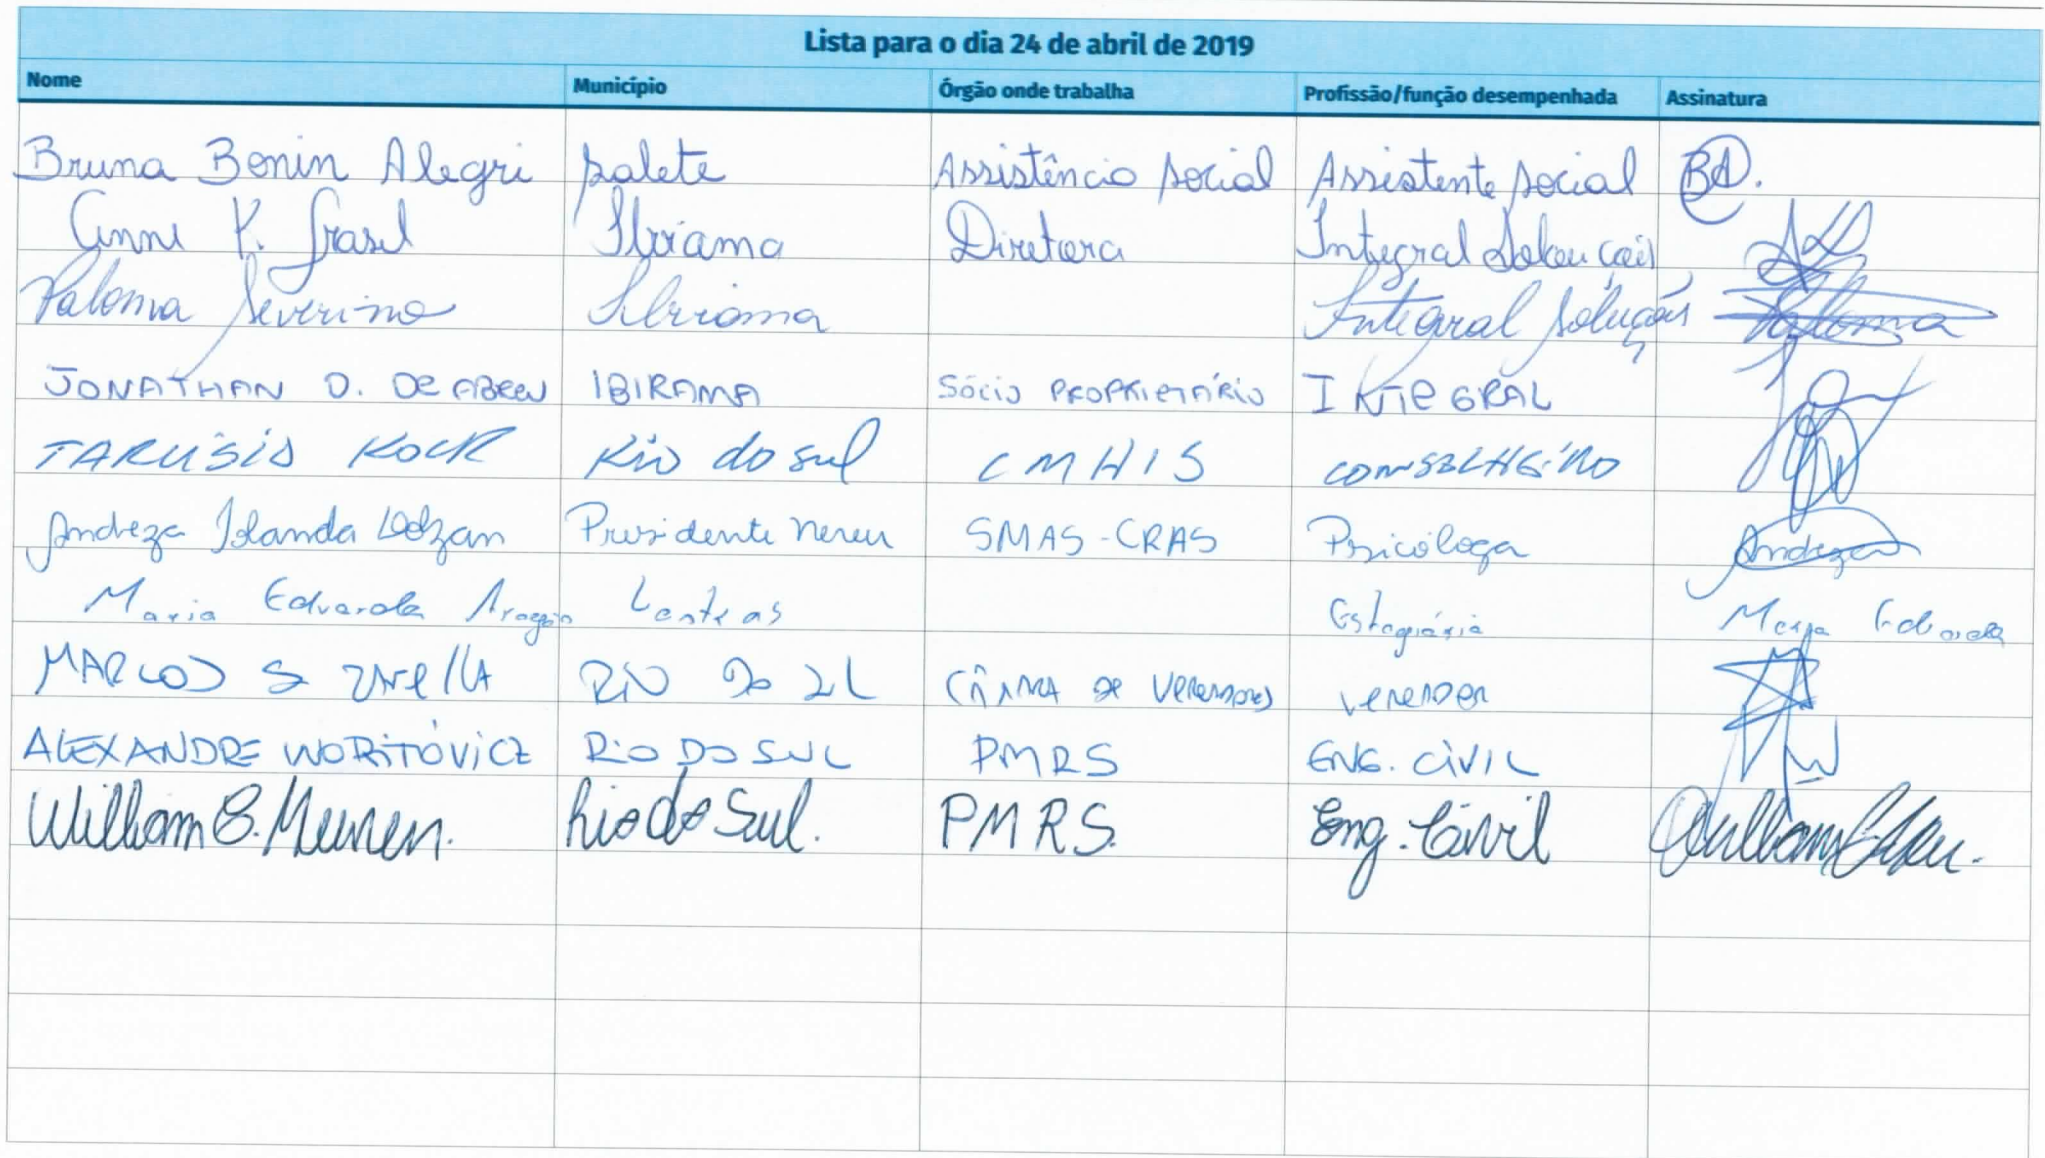 Lista para o dia 24 de abril de 2019
Nome Município Órgão onde trabalha Profissão/função desempenhada Assinatura
Bruna Bonin Alegri Salete Assistência social Assistente social BA.
Anne K. Grasel Ibirama Diretora Integral Soluções
Paloma Severino Ibirama Integral Soluções Paloma
JONATHAN D. DE ABREU IBIRAMA SÓCIO PROPRIETÁRIO INTEGRAL
TARCÍSIO KOCK Rio do sul CMHIS CONSELHEIRO
Andreza Iolanda Presidente Nereu SMAS-CRAS Psicóloga Andreza
Maria Eduarda Aragão Lontras Estagiária Maria Eduarda
MARCOS S ZANELLA RIO DO SUL CÂMARA DE VEREADORES VEREADOR
ALEXANDRE WORITOVICZ RIO DO SUL PMRS ENG. CIVIL
William C. Meurer. Rio do Sul. PMRS. Eng. Civil